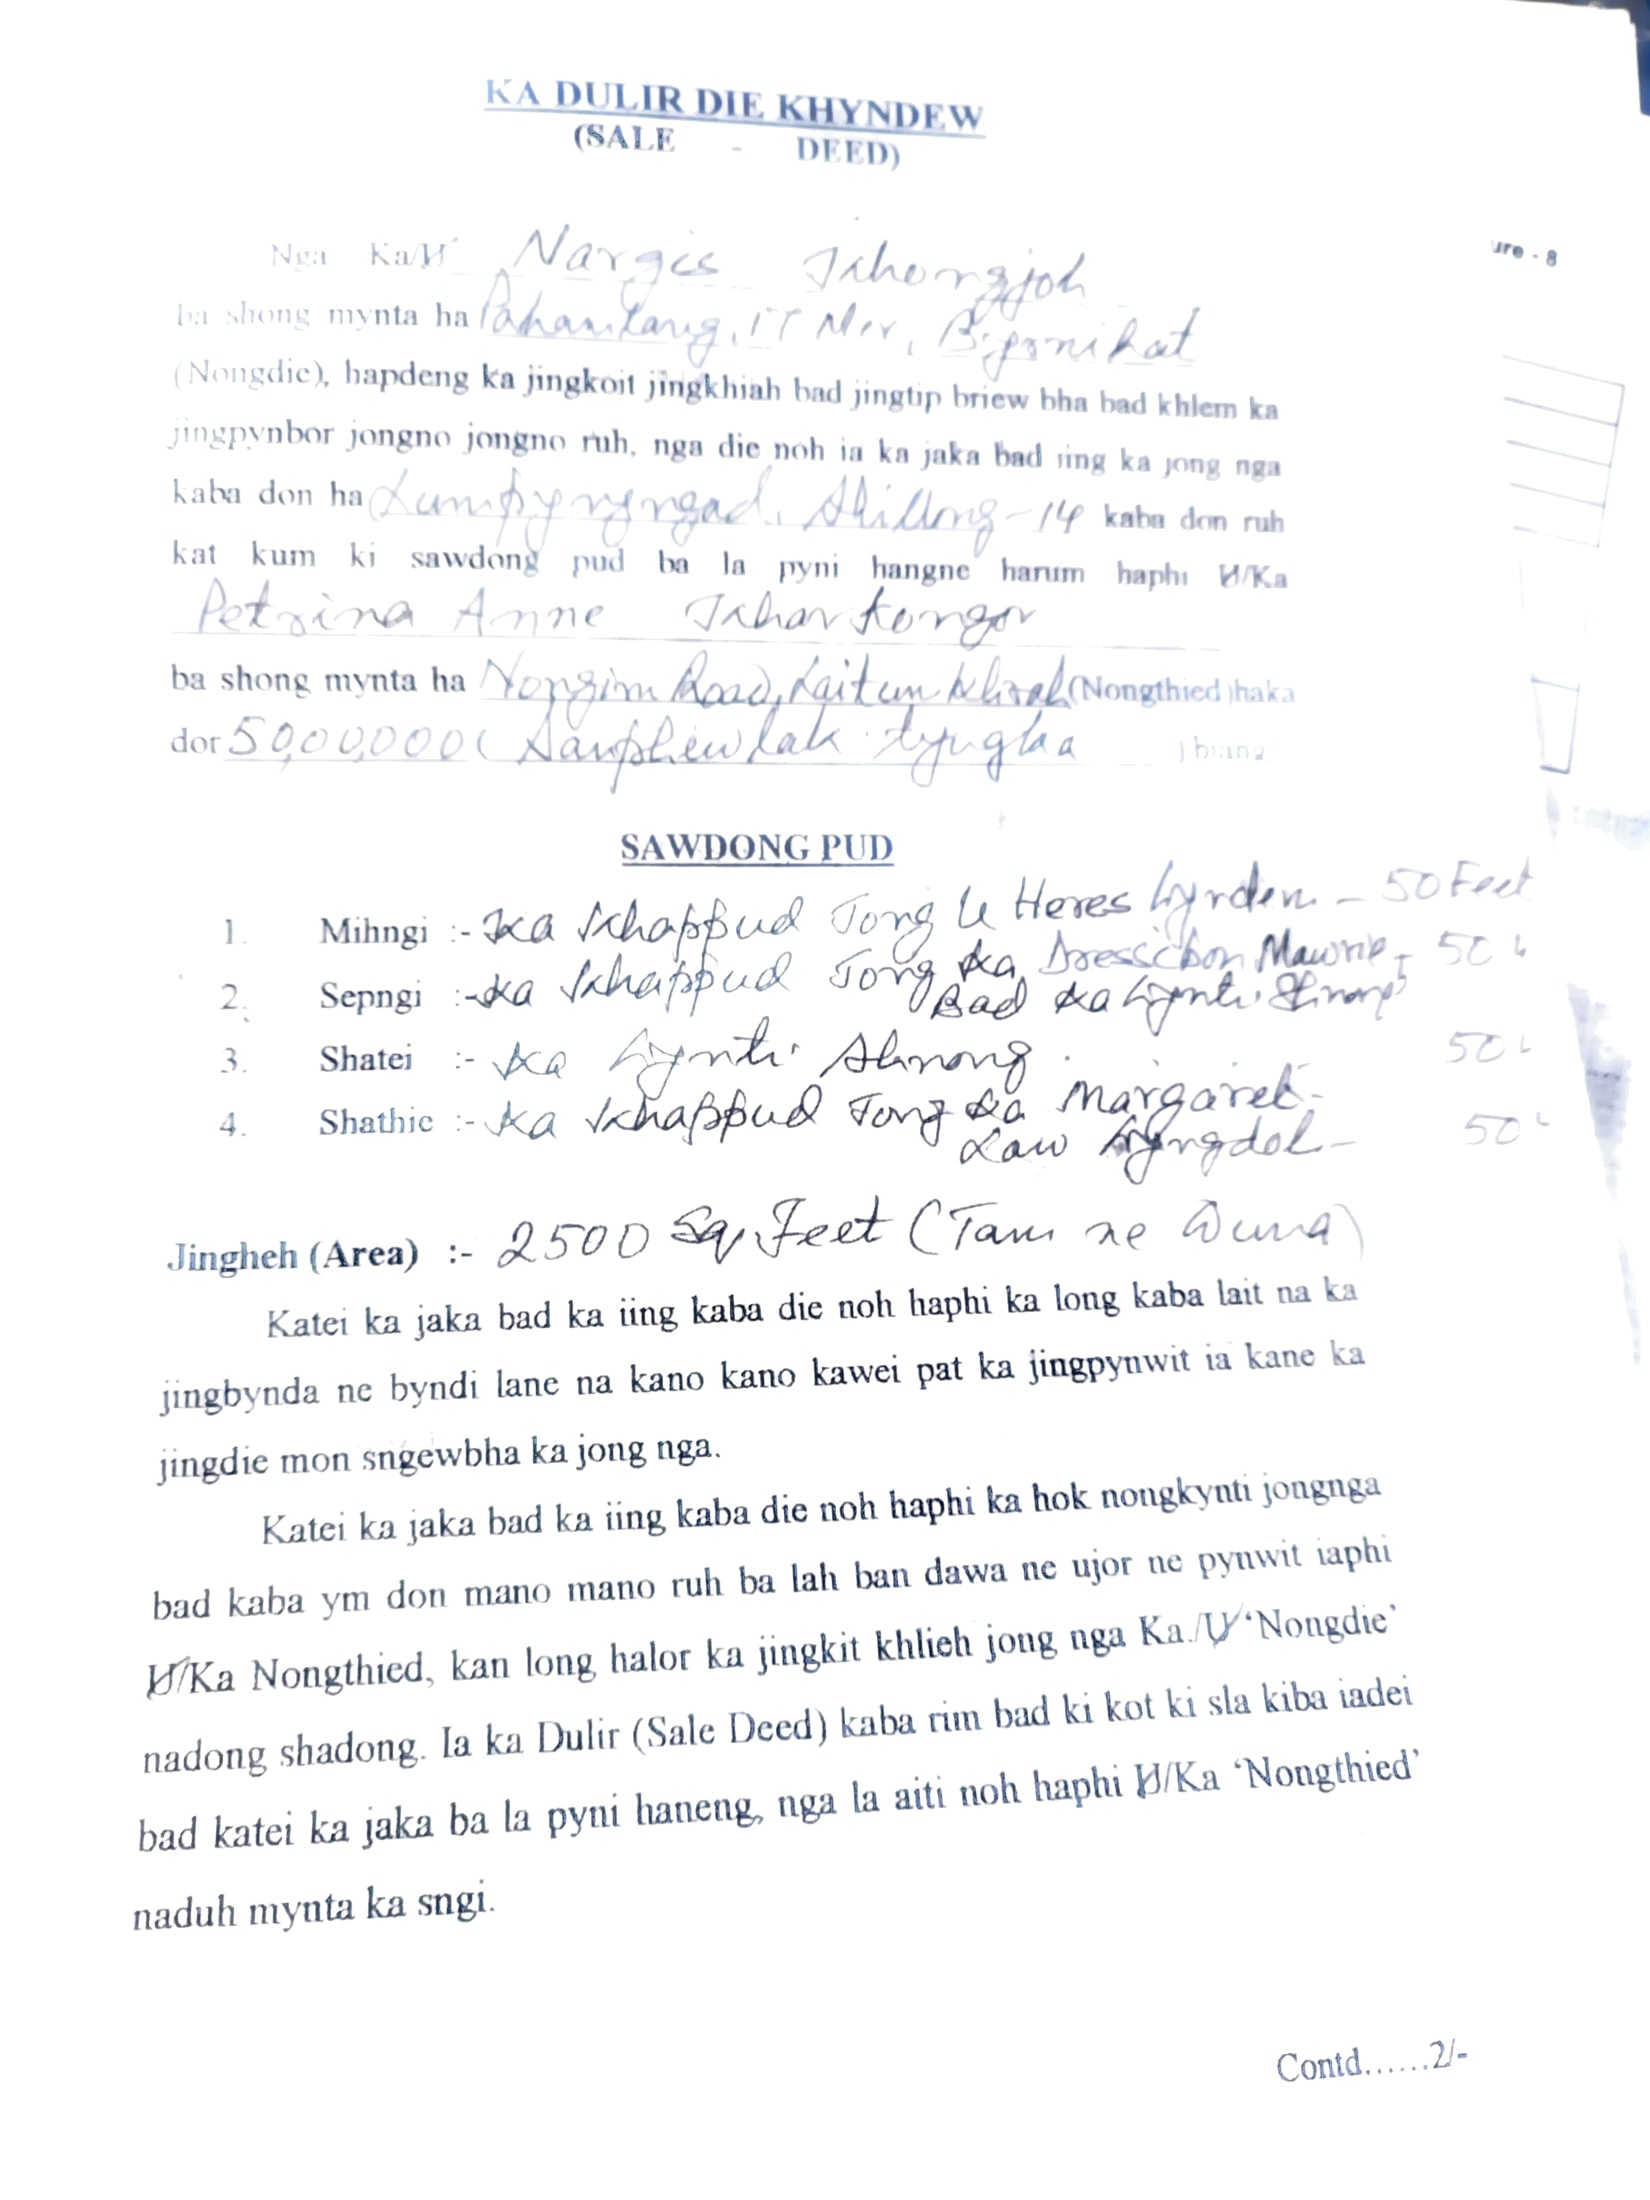 KA DULIR DIE KHYNDEW
(SALE - DEED)
ure - 8
Nga Ka/U Nargis Khongjoh
ba shong mynta ha Pahamlang, 17 Mer, Byrnihat
(Nongdie), hapdeng ka jingkoit jingkhiah bad jingtip briew bha bad khlem ka
jingpynbor jongno jongno ruh, nga die noh ia ka jaka bad iing ka jong nga
kaba don ha Lumpyngngad, Shillong-14 kaba don ruh
kat kum ki sawdong pud ba la pyni hangne harum haphi U/Ka
Petrina Anne Kharkongor
ba shong mynta ha Nongrim Road, Laitumkhrah (Nongthied)haka
dor 50,00,000 ( Sanphew lak tyngka ) biang
SAWDONG PUD
1. Mihngi :- Ka Khappud Jong U Heres Lyrden - 50 Feet
2. Sepngi :- Ka Khappud Jong Ka Mawrie - 50 "
Bad Ka Lynti Shnong
3. Shatei :- Ka Lynti Shnong 50 "
4. Shathie :- Ka Khappud Jong Ka Margaret
Law Lyngdoh - 50 "
Jingheh (Area) :- 2500 Sq. Feet (Tam ne Duna)
Katei ka jaka bad ka iing kaba die noh haphi ka long kaba lait na ka
jingbynda ne byndi lane na kano kano kawei pat ka jingpynwit ia kane ka
jingdie mon sngewbha ka jong nga.
Katei ka jaka bad ka iing kaba die noh haphi ka hok nongkynti jongnga
bad kaba ym don mano mano ruh ba lah ban dawa ne ujor ne pynwit iaphi
U/Ka Nongthied, kan long halor ka jingkit khlieh jong nga Ka./U 'Nongdie'
nadong shadong. Ia ka Dulir (Sale Deed) kaba rim bad ki kot ki sla kiba iadei
bad katei ka jaka ba la pyni haneng, nga la aiti noh haphi U/Ka 'Nongthied'
naduh mynta ka sngi.
Contd......2/-